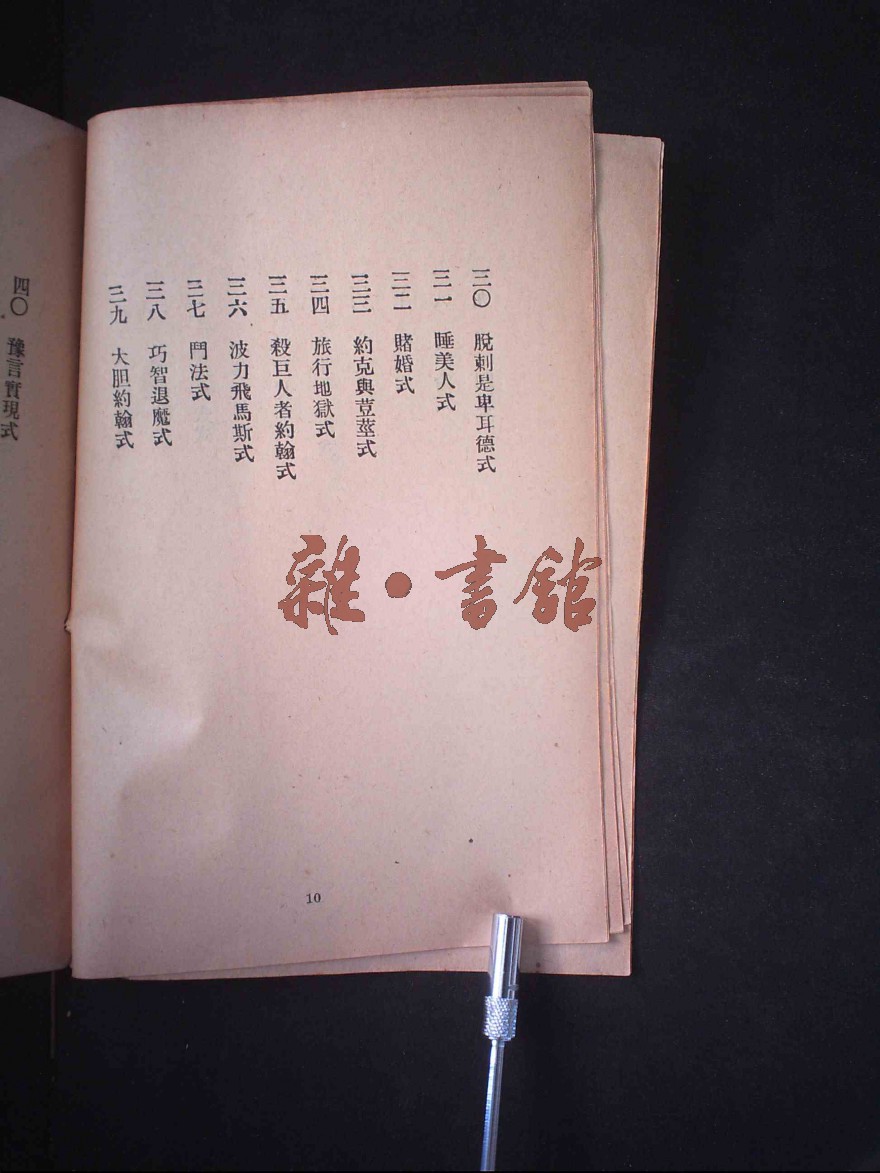 三〇 脫刺是卑耳德式
三一 睡美人式
三二 賭婚式
三三 約克與荳莖式
三四 旅行地獄式
三五 殺巨人者約翰式
三六 波力飛馬斯式
三七 鬥法式
三八 巧智退魔式
三九 大胆約翰式
10
四〇 豫言實現式
雜·書館